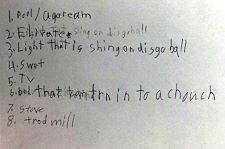 1. Pool / aqaream
2. singondisgoball
3. Light that is shing on disgo ball
4. swet
5. TV
6. bed that can trn in to a chouch
7. stove
8. trod mill